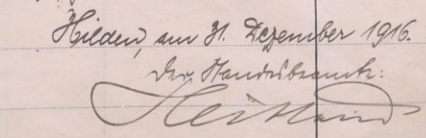 Hilden, am 31. Dezember 1916.
Der Standesbeamte: